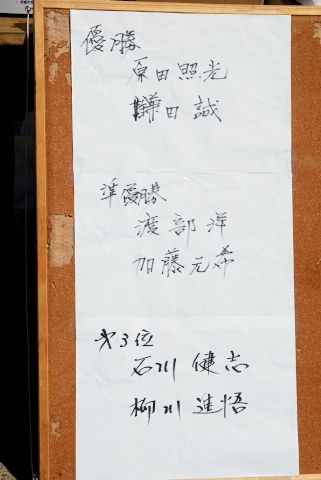 優勝
原田照光
鎌田誠
準優勝
渡部洋
加藤元希
第3位
石川健志
柳川進悟